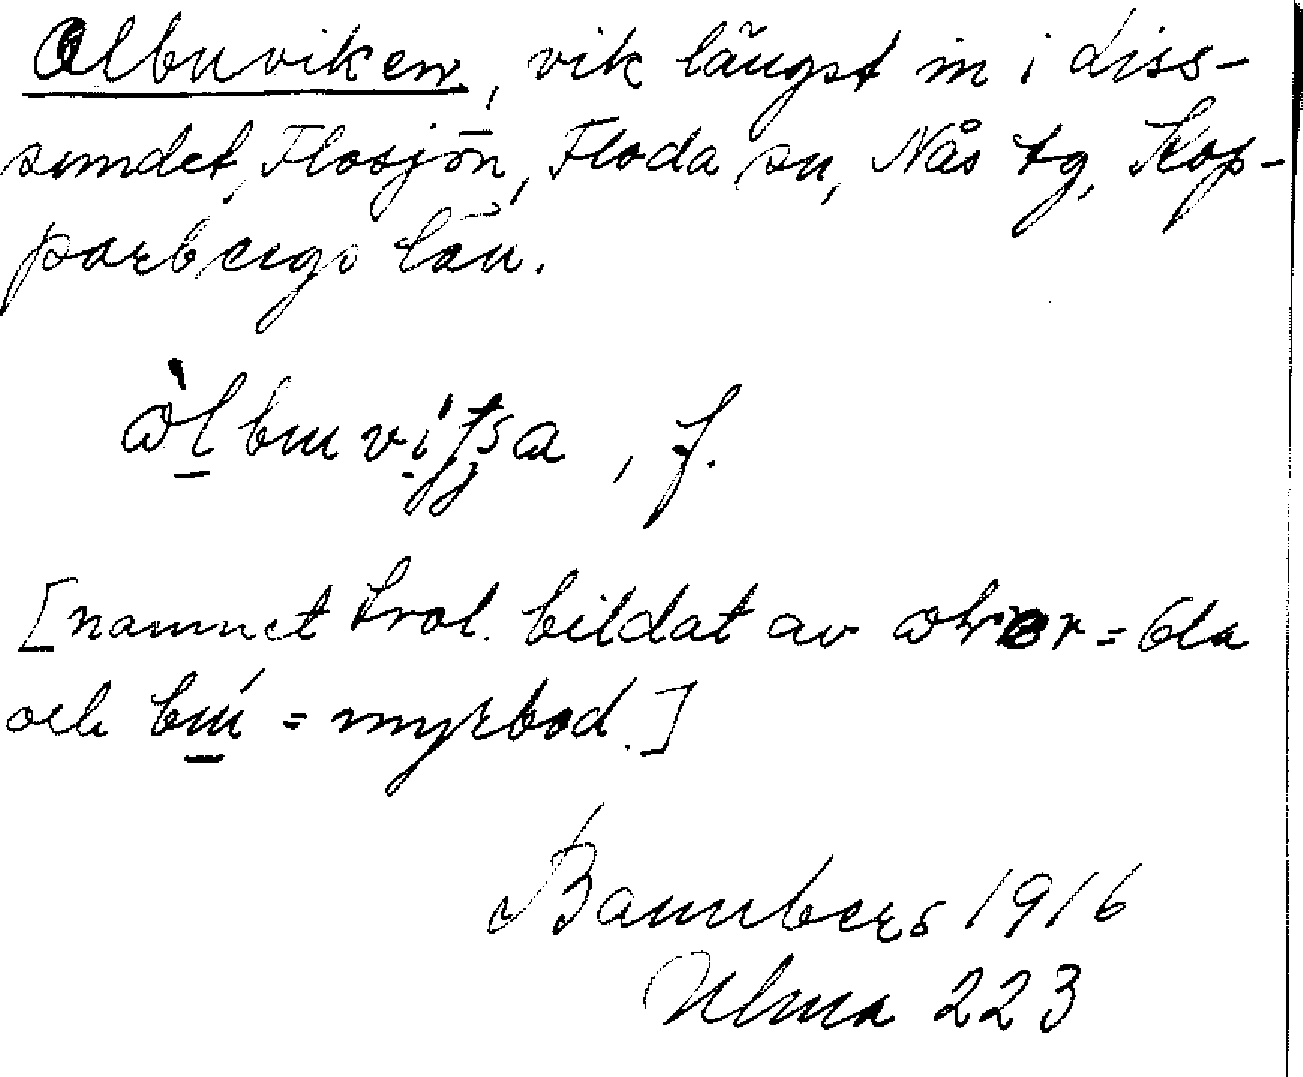 Olbuviken, vik längst in i Liss-
sundet, Flosjön, Floda sn, Nås tg, Kop-
parbergs län.
, f.
[namnet trol. bildat av = Ola
och = myrbod.]
Bannbers 1916
Ulma 223